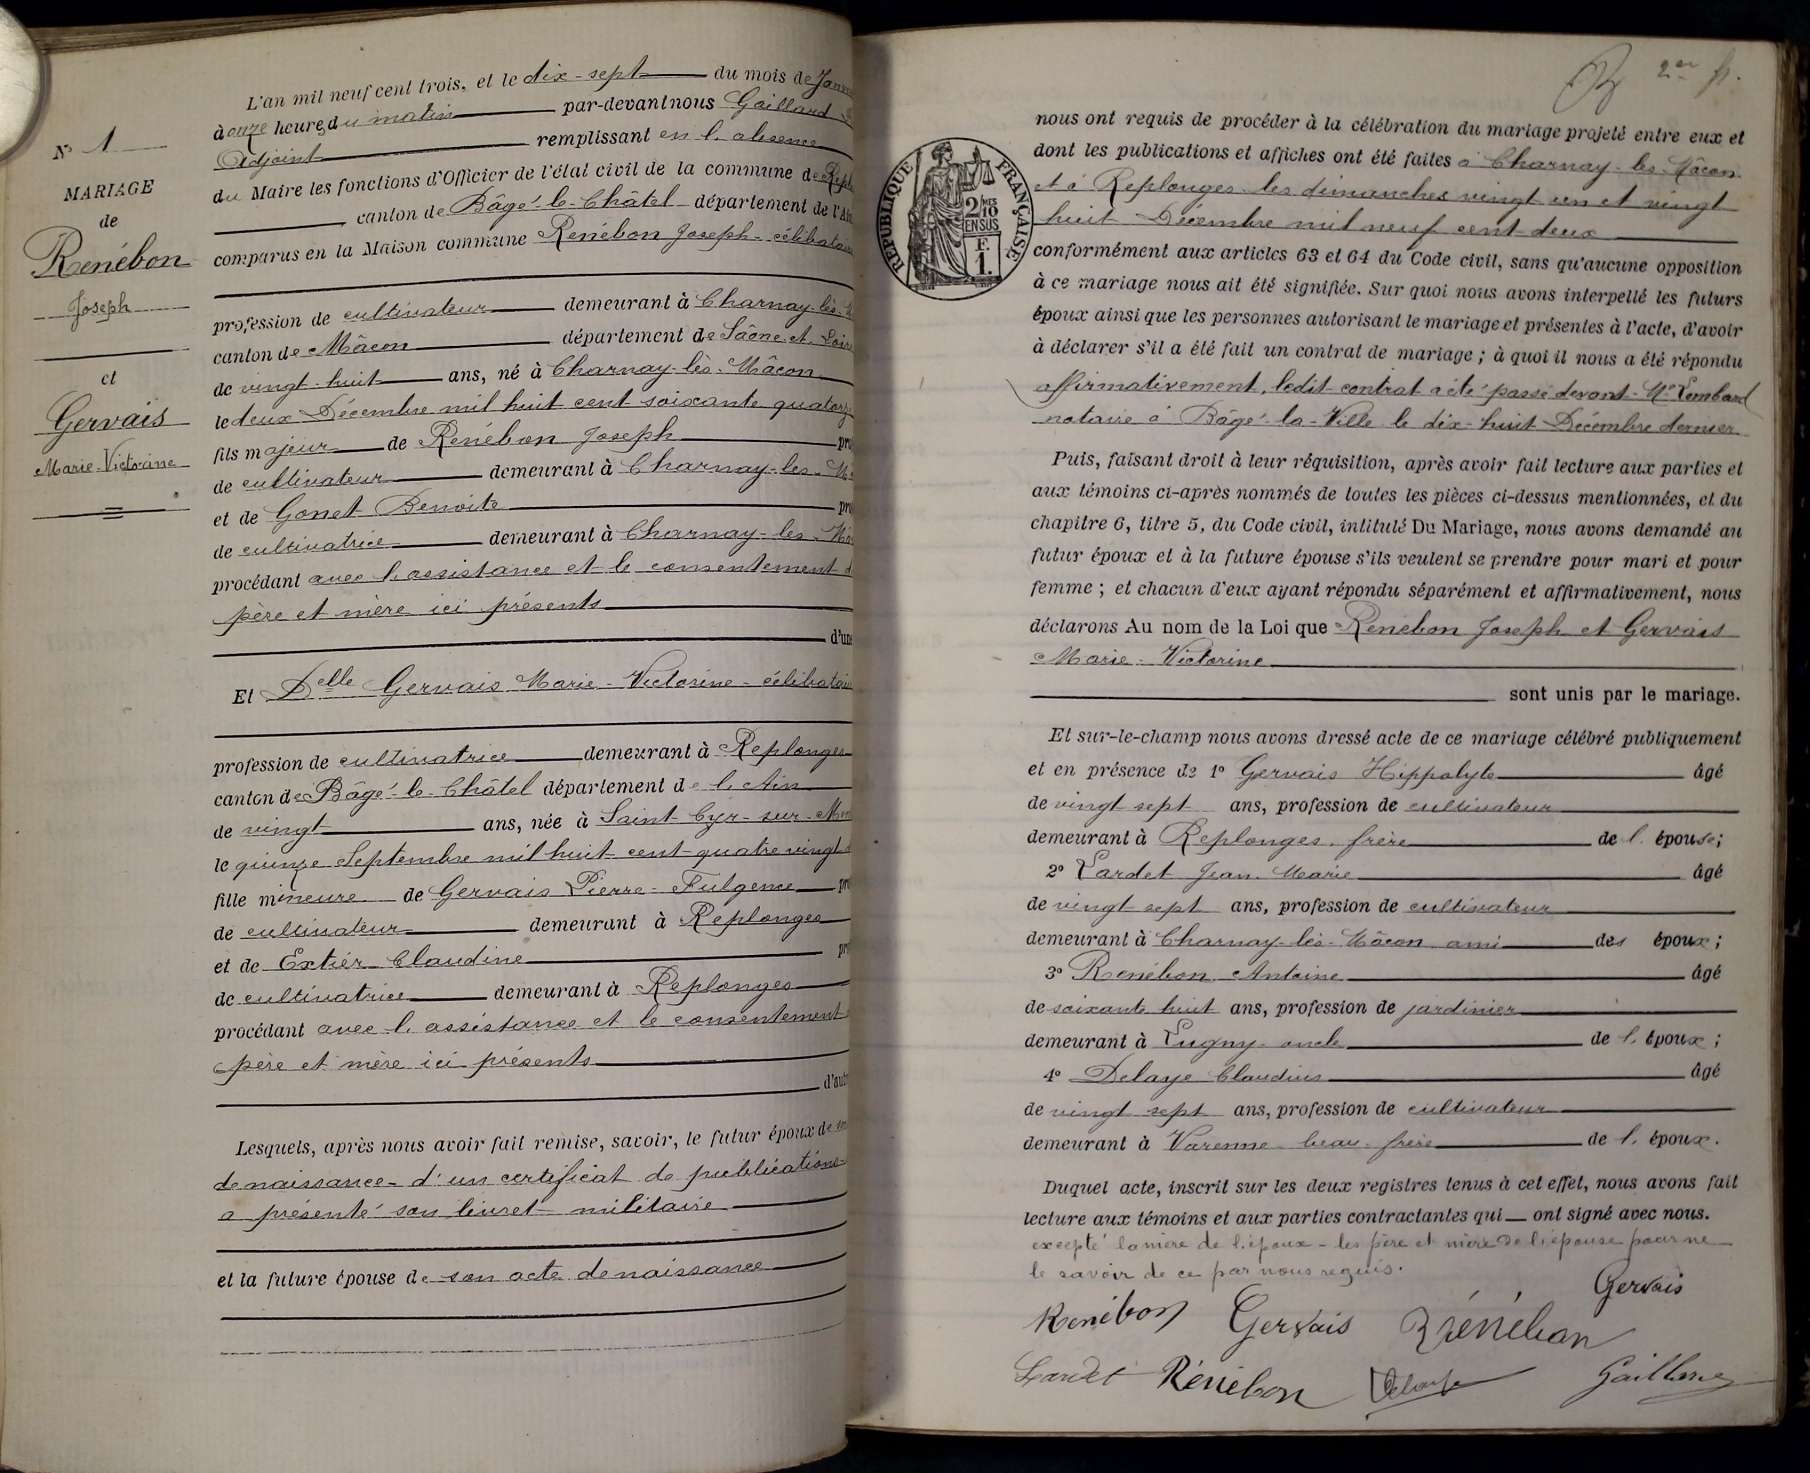 N° 1
MARIAGE
de
Renébon
Joseph
et
Gervais
Marie-Victorine
L'an mil neuf cent trois, et le dix-sept du mois de
à onze heures du matin par-devant nous Gaillard
Adjoint remplissant en l'absence
du Maire les fonctions d'Officier de l'état civil de la commune de
canton de Bâgé-le-Châtel département de
comparus en la Maison commune Renébon Joseph - célibataire
profession de cultivateur demeurant à Charnay-lès-
canton de Mâcon département de Saône et Loire
de vingt-huit ans, né à Charnay-lès-Mâcon
le deux Décembre mil huit cent soixante quatorze
fils majeur de Renébon Joseph
de cultivateur demeurant à Charnay-les-
et de Gonet Benoite
de cultivatrice demeurant à Charnay-les-
procédant avec l'assistance et le consentement
père et mère ici présents
d'une
Et Delle Gervais Marie-Victorine - célibataire
profession de cultivatrice demeurant à Replonges
canton de Bâgé-le-Châtel département de l'Ain
de vingt ans, née à Saint-Cyr-sur-
le quinze Septembre mil huit cent quatre vingt
fille mineure de Gervais Pierre-Fulgence
de cultivateur demeurant à Replonges
et de Extier Claudine
de cultivatrice demeurant à Replonges
procédant avec l'assistance et le consentement
père et mère ici présents
Lesquels, après nous avoir fait remise, savoir, le futur époux de son
de naissance - d'un certificat de publications
a présenté son livret militaire
et la future épouse de son acte de naissance
RÉPUBLIQUE FRANÇAISE
2/10 MES
EN SUS
F.
1.
nous ont requis de procéder à la célébration du mariage projeté entre eux et
dont les publications et affiches ont été faites à Charnay-les-Mâcon
et à Replonges les dimanches vingt un et vingt
huit Décembre mil neuf cent deux
conformément aux articles 63 et 64 du Code civil, sans qu'aucune opposition
à ce mariage nous ait été signifiée. Sur quoi nous avons interpellé les futurs
époux ainsi que les personnes autorisant le mariage et présentes à l'acte, d'avoir
à déclarer s'il a été fait un contrat de mariage ; à quoi il nous a été répondu
affirmativement, ledit contrat a été passé devant Me Lombard
notaire à Bâgé-la-Ville le dix-huit Décembre dernier
Puis, faisant droit à leur réquisition, après avoir fait lecture aux parties et
aux témoins ci-après nommés de toutes les pièces ci-dessus mentionnées, et du
chapitre 6, titre 5, du Code civil, intitulé Du Mariage, nous avons demandé au
futur époux et à la future épouse s'ils veulent se prendre pour mari et pour
femme ; et chacun d'eux ayant répondu séparément et affirmativement, nous
déclarons Au nom de la Loi que Renébon Joseph et Gervais
Marie-Victorine
sont unis par le mariage.
Et sur-le-champ nous avons dressé acte de ce mariage célébré publiquement
et en présence de 1° Gervais Hippolyte âgé
de vingt sept ans, profession de cultivateur
demeurant à Replonges, frère de l'épouse;
2° Lardet Jean-Marie âgé
de vingt sept ans, profession de cultivateur
demeurant à Charnay-lès-Mâcon ami des époux ;
3° Renébon Antoine âgé
de soixante huit ans, profession de jardinier
demeurant à Lugny - oncle de l'époux ;
4° Delaye Claudius âgé
de vingt sept ans, profession de cultivateur
demeurant à Varenne beau-frère de l'époux.
Duquel acte, inscrit sur les deux registres tenus à cet effet, nous avons fait
lecture aux témoins et aux parties contractantes qui ont signé avec nous.
excepté la mère de l'époux - les père et mère de l'épouse pour ne
le savoir de ce par nous requis.
Gervais
Renébon Gervais Rénébon
Lardet Rénébon Delaye Gaillard